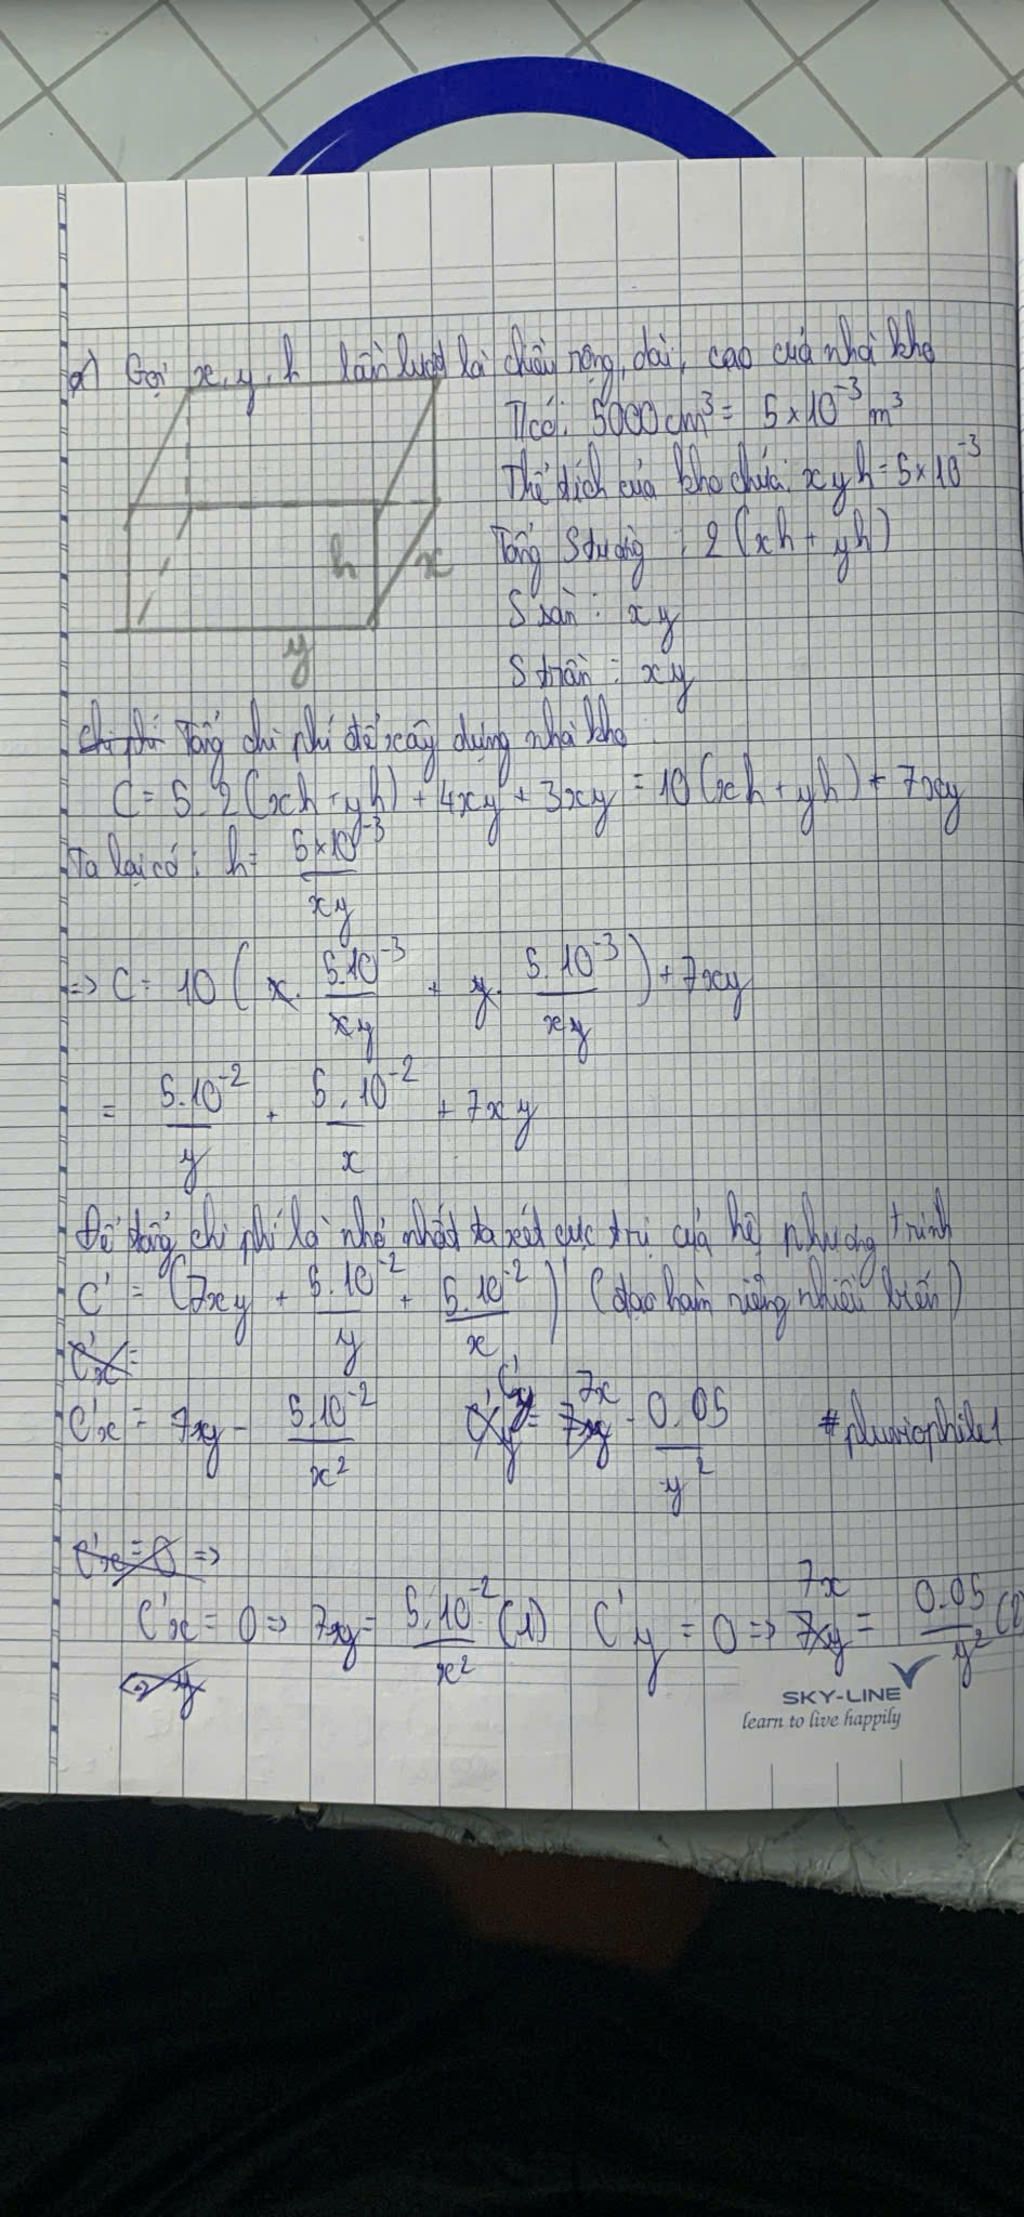 a) Gọi x, y, h lần lượt là chiều rộng, dài, cao của nhà kho
Ta có: 5000 cm³ = 5 × 10⁻³ m³
Thể tích của kho chứa: xyh = 5 × 10⁻³
h
x
y
Tổng S tường : 2(xh + yh)
S sàn : xy
S trần : xy
Chi phí Tổng chi phí để xây dựng nhà kho
C = 5.2(xh + yh) + 4xy + 3xy = 10(xh + yh) + 7xy
Ta lại có : h = 5×10⁻³/xy
=> C = 10 ( x. 5.10⁻³/xy + y. 5.10⁻³/xy ) + 7xy
= 5.10⁻²/y + 5.10⁻²/x + 7xy
Để tổng chi phí là nhỏ nhất ta xét cực trị của hệ phương trình
C' = (7xy + 5.10⁻²/y + 5.10⁻²/x)' (đạo hàm riêng nhiều biến)
C'x =
C'x = 7xy - 5.10⁻²/x² C'y = 7x - 0.05/y² #pluviophile1
C'x = 0 =>
C'x = 0 => 7xy = 5.10⁻²/x² (1) C'y = 0 => 7x = 0.05/y²
SKY-LINE
learn to live happily